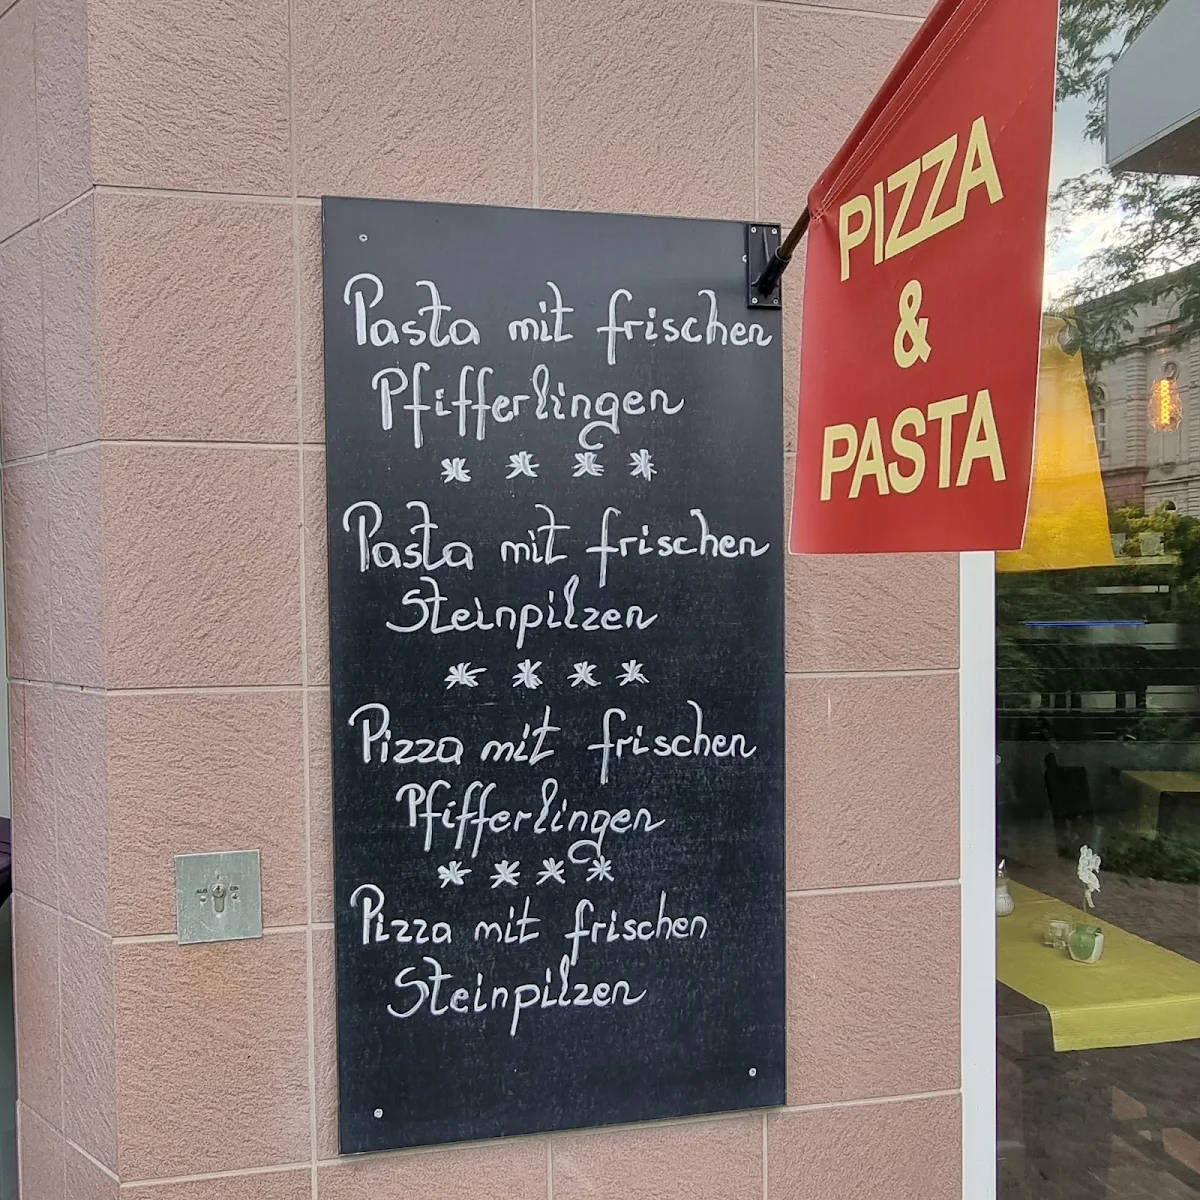 Pasta mit frischen
Pfifferlingen
* * * *
Pasta mit frischen
Steinpilzen
* * * *
Pizza mit frischen
Pfifferlingen
* * * *
Pizza mit frischen
Steinpilzen
PIZZA
&
PASTA